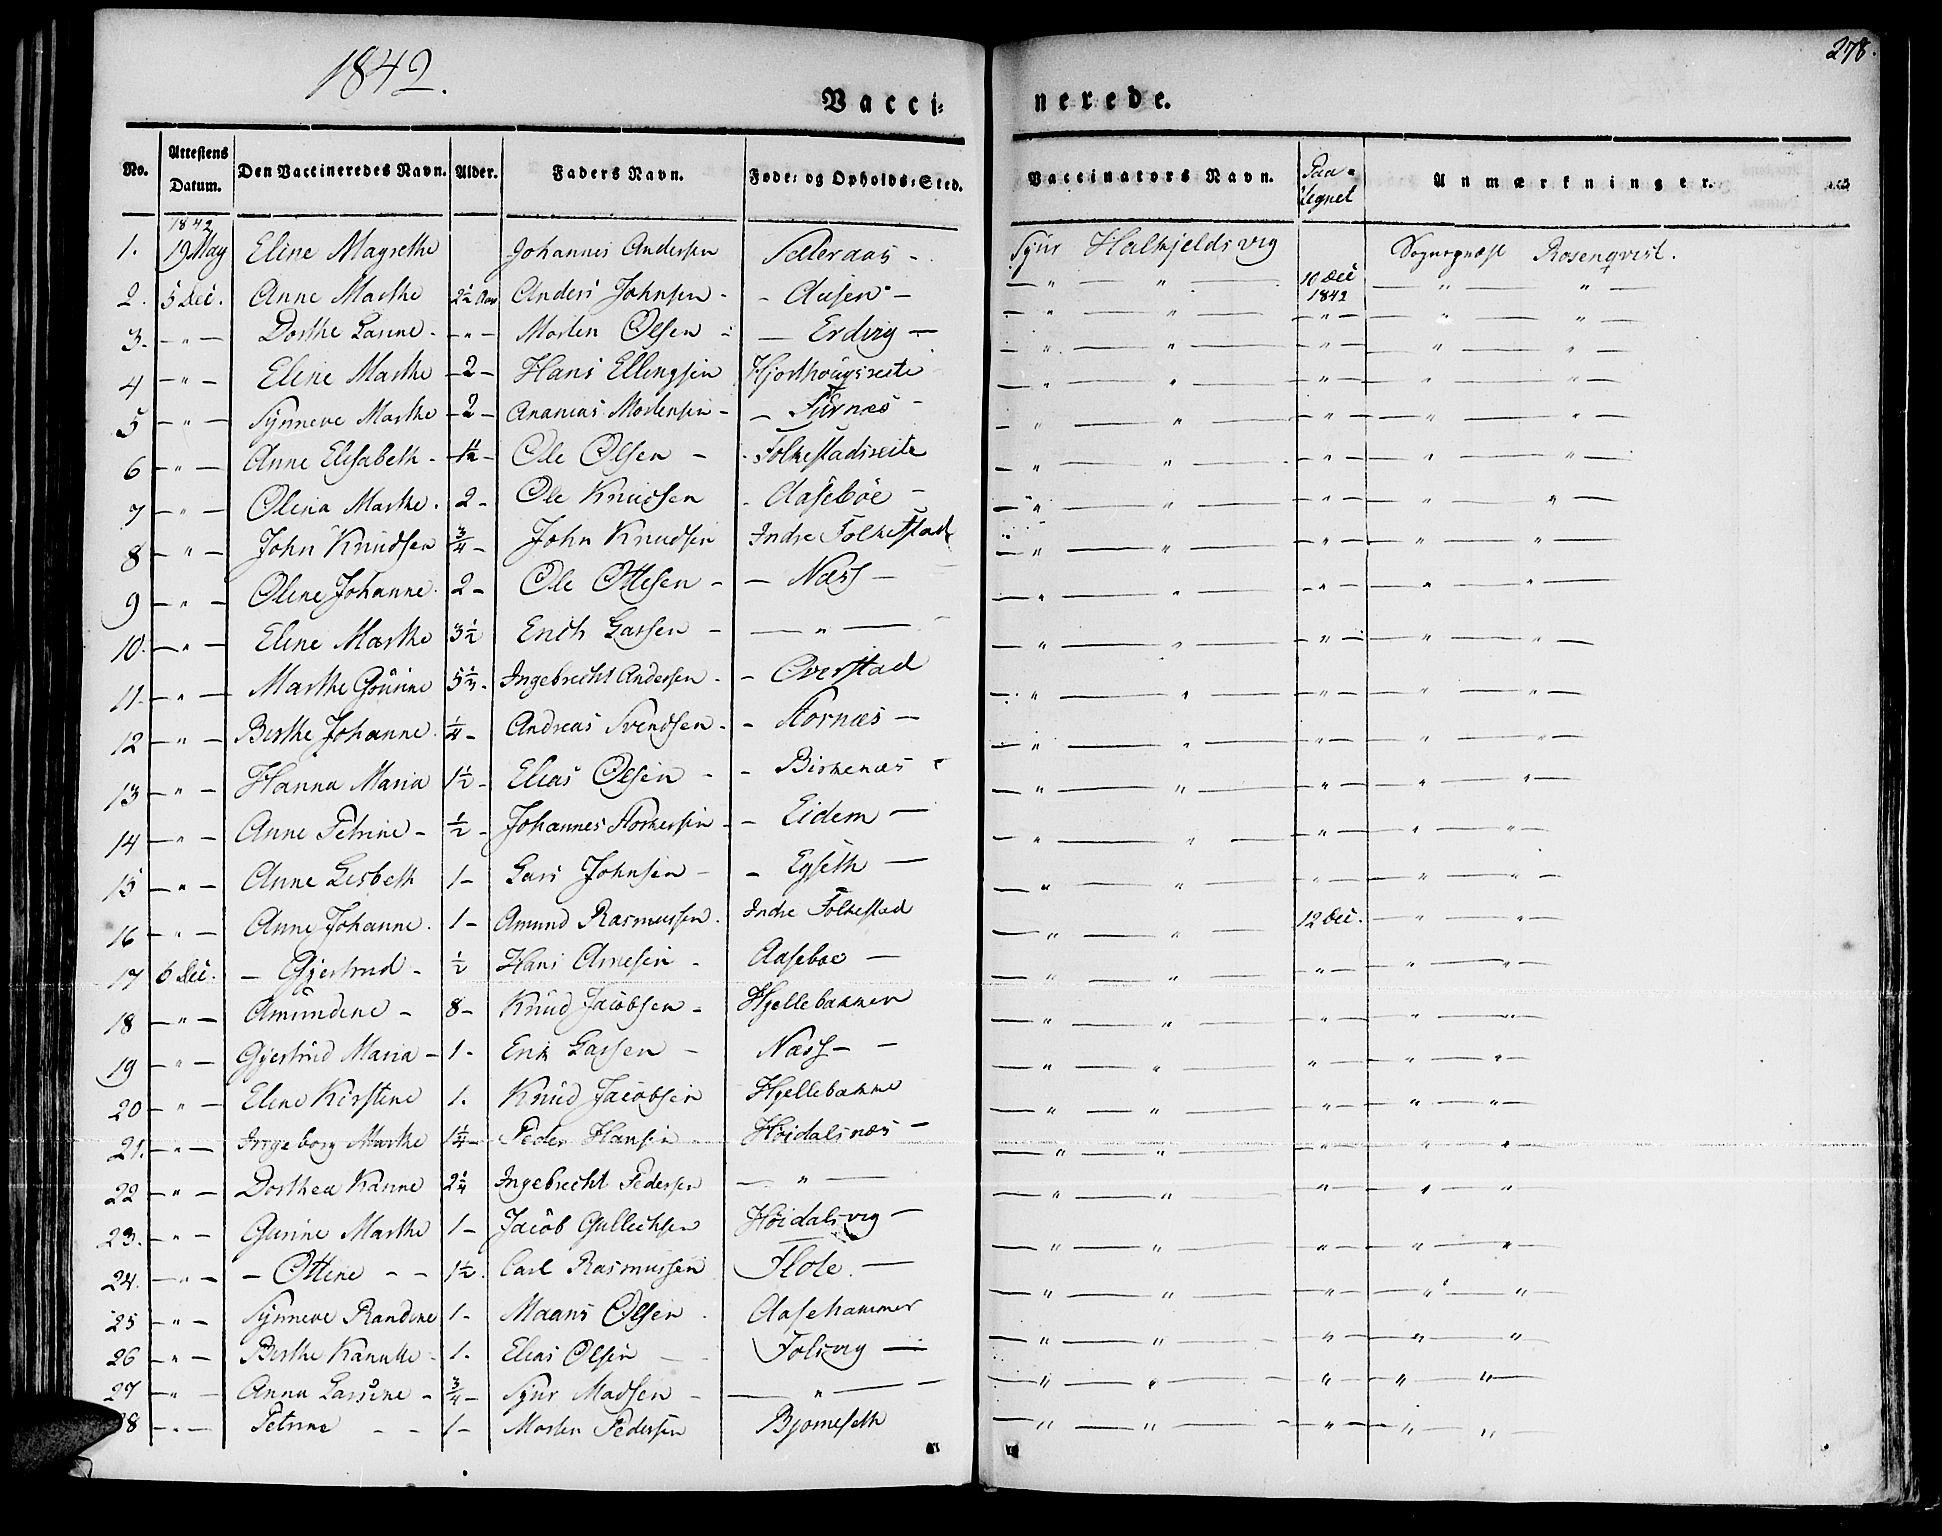 1842.
278.
Vacci-
nerede.
No. Attestens Datum. Den Vaccineredes Navn. Alder. Faders Navn. Føde- og Opholds-Sted. Vaccinators Navn. Paa-tegnet Anmærkninger.
1842
1. 19 May Eline Magrethe Johannes Andersen Sætteraas - Sjur Halkjeldsvig Sognepræst Rosenqvist.
2. 5 Dec. Anne Marthe 2½ Aar Anders Johnsen - - Aasen - — " — " — 10 Dec 1842 — " — " —
3. — " — Dorthe Larine - - " - Morten Olsen - — Erdvig — — " — " — — " — — " — " —
4 — " — Eline Marthe - 2 - Hans Ellingsen Hjorthougsseite — " — " — — " — — " — " —
5 — " — Synneve Marthe - 2 - Ananias Mortensen - — Furnæs - — " — " — — " — — " — " —
6 — " — Anne Elisabeth - - 1½ - Ole Olsen - - Folkestadseite — " — " — — " — — " — " —
7 — " — Olina Marthe . 2 - Ole Knudsen - Aasebøe - — " — " — — " — — " — " —
8 — " — John Knudsen ¾ - John Knudsen Indre Folkestad — " — " — — " — — " — " —
9 — " — Oline Johanne . 2 - Ole Ottesen - — Næss — — " — " — — " — — " — " —
10. — " — Eline Marthe 3½ Erich Larsen - — " — — " — " — — " — — " — " —
11. — " — Marthe Gourine 5½ - Ingebrecht Andersen - - Overstad — " — " — — " — — " — " —
12 — " — Berthe Johanne . ¼ - Andreas Svendsen - - Stornæs — — " — " — — " — — " — " —
13 — " — Hanna Maria 1½ - Elias Olsen - - Birkenæs - — " — " — — " — — " — " —
14 — " — Anne Petrine - ½ - Johannes Storkersen - - Eidem — — " — " — — " — — " — " —
15 — " — Anne Lisbeth 1 - Lars Johnsen - - Egseth — — " — " — — " — — " — " —
16 — " — Anne Johanne . 1 - Amund Rasmussen . Indre Folkestad — " — " — 12 Dec. — " — " —
17 6 Dec. - Gjertrud - ½ Hans Arnesen - Aasebøe — — " — " — — " — — " — " —
18 — " — Amundine - 8 - Knud Jacobsen - Hjellebakken — " — " — — " — — " — " —
19 — " — Gjertrud Maria - 1 - Erik Larsen - Næss — - — " — " — — " — — " — " —
20 — " — Eline Kirstine 1. Knud Jacobsen Hjellebakke — " — " — — " — — " — " —
21. — " — Ingeborg Marthe 1¼ - Peder Hansen - Høidalsnæs — — " — " — — " — — " — " —
22 — " — Dorthea Hanne 2¼ Ingebrecht Pedersen — " — — " — " — — " — — " — " —
23. — " — Gurine Marthe 1 - Jacob Gullichsen Høidalsvig — — " — " — — " — — " — " —
24. — " — - Ottine - - 1½. Carl Rasmussen Flote. — — " — " — — " — — " — " —
25 — " — Synneve Randine 1 - Maans Olsen . Aasehammer — " — " — — " — — " — " —
26 — " — Berthe Kanutte - 1. Elias Olsen — Folsvig — — " — " — — " — — " — " —
27 — " — Anna Larsine - ¾ - Sjur Madsen - — " — — " — " — — " — — " — " —
28 — " — Petrine - - 1 - Morten Pedersen Bjørneseth — " — " — — " — — " — " —